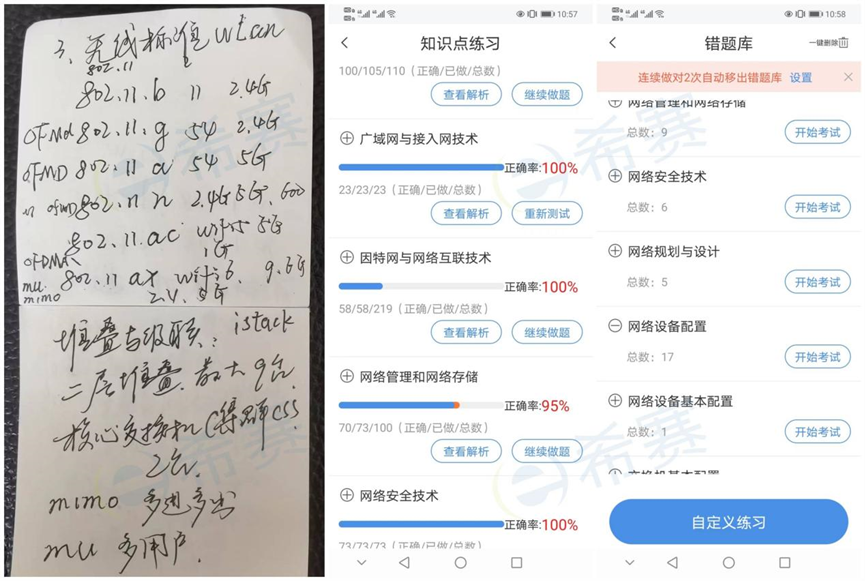 3、无线标准 wlan
802.11
802.11.b 11 2.4G
OFMd 802.11.g 54 2.4G
OFMD 802.11 a 54 5G
802.11 n 2.4G 5G. 600
802.11.ac wifi5 5G
1G
OFDMA
mu 802.11 ax wifi6. 9.6G
mimo 2.4. 5G
堆叠与级联: istack
二层堆叠. 最大9台.
核心交换机 集群CSS
2台.
mimo 多进多出
mu 多用户.
希赛
10:57
知识点练习
100/105/110（正确/已做/总数）
查看解析 继续做题
广域网与接入网技术
正确率:100%
23/23/23（正确/已做/总数）
查看解析 重新测试
因特网与网络互联技术
正确率:100%
58/58/219（正确/已做/总数）
查看解析 继续做题
网络管理和网络存储
正确率:95%
70/73/100（正确/已做/总数）
查看解析 继续做题
网络安全技术
正确率:100%
73/73/73（正确/已做/总数）
希赛
希赛
10:58
错题库
一键删除
连续做对2次自动移出错题库 设置
网络管理和网络存储
总数：9
开始考试
网络安全技术
总数：6
开始考试
网络规划与设计
总数：5
开始考试
网络设备配置
总数：17
开始考试
网络设备基本配置
总数：1
开始考试
交换机基本配置
自定义练习